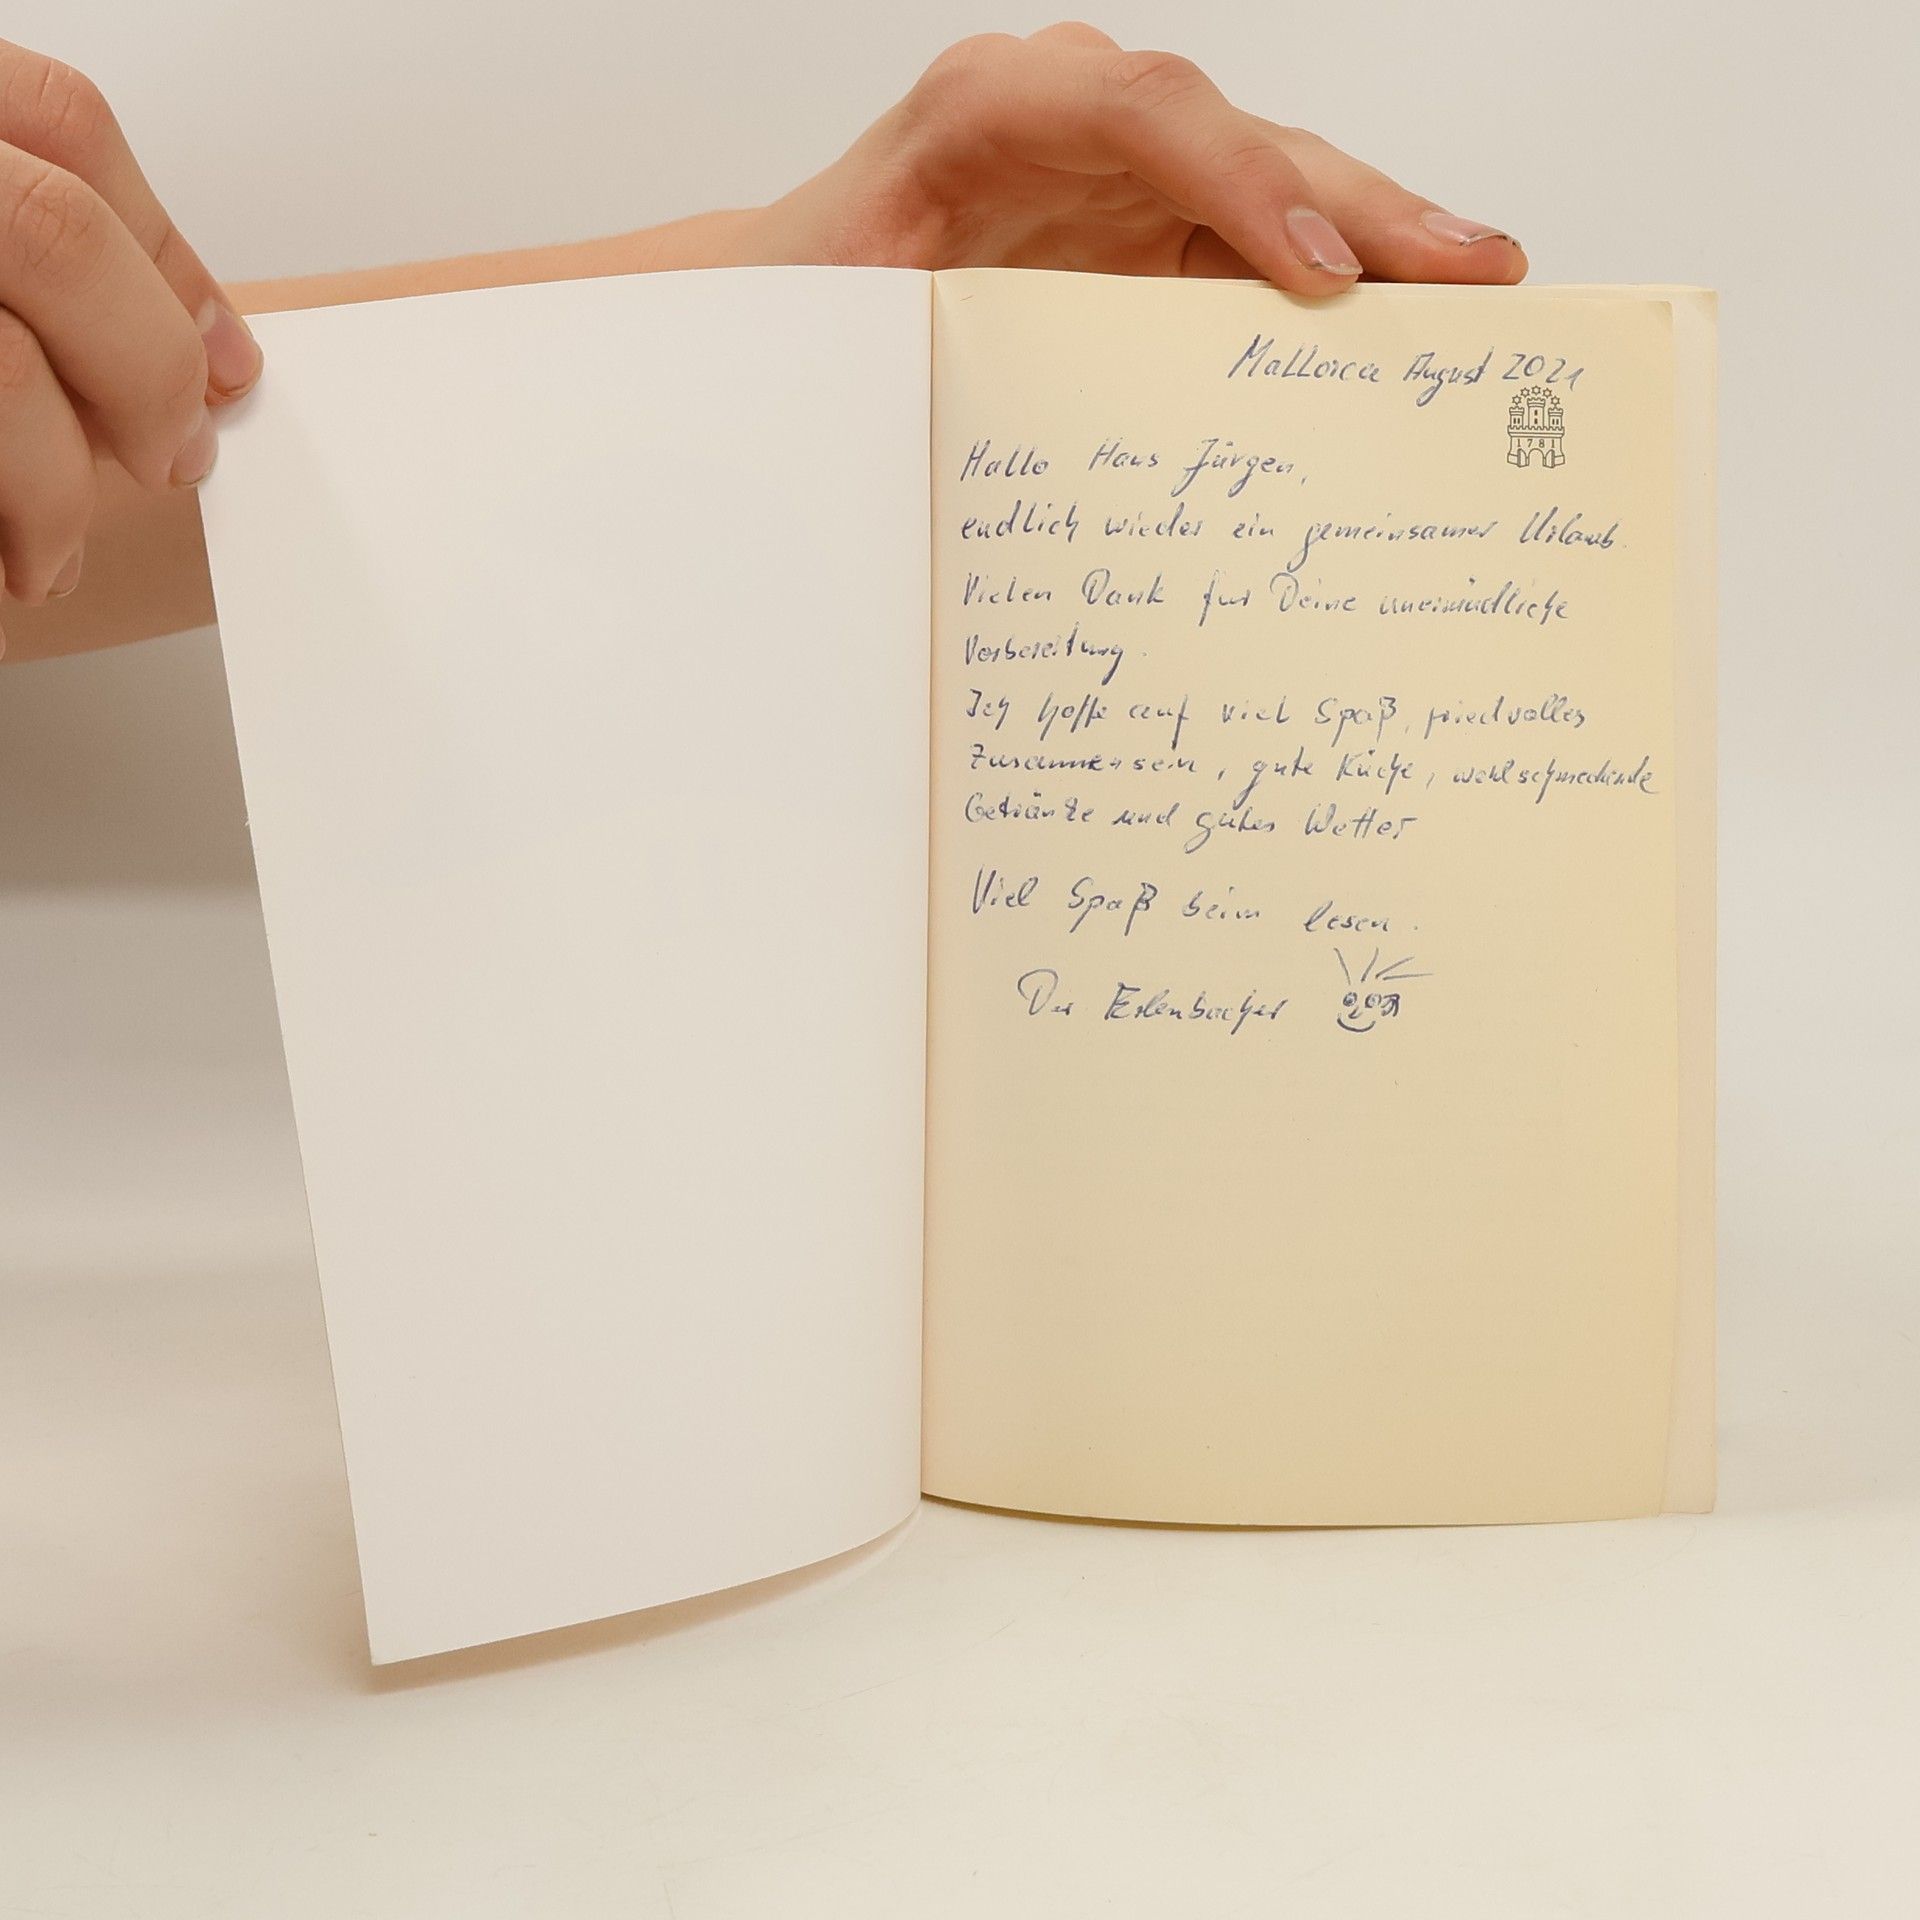 Mallorca August 2021
1781
Hallo Hans Jürgen,
endlich wieder ein gemeinsamer Urlaub.
Vielen Dank für Deine unermüdliche
Vorbereitung.
Ich hoffe auf viel Spaß, friedvolles
Zusammensein, gute Küche, wohlschmeckende
Getränke und gutes Wetter
Viel Spaß beim lesen.
Der Erlenbacher